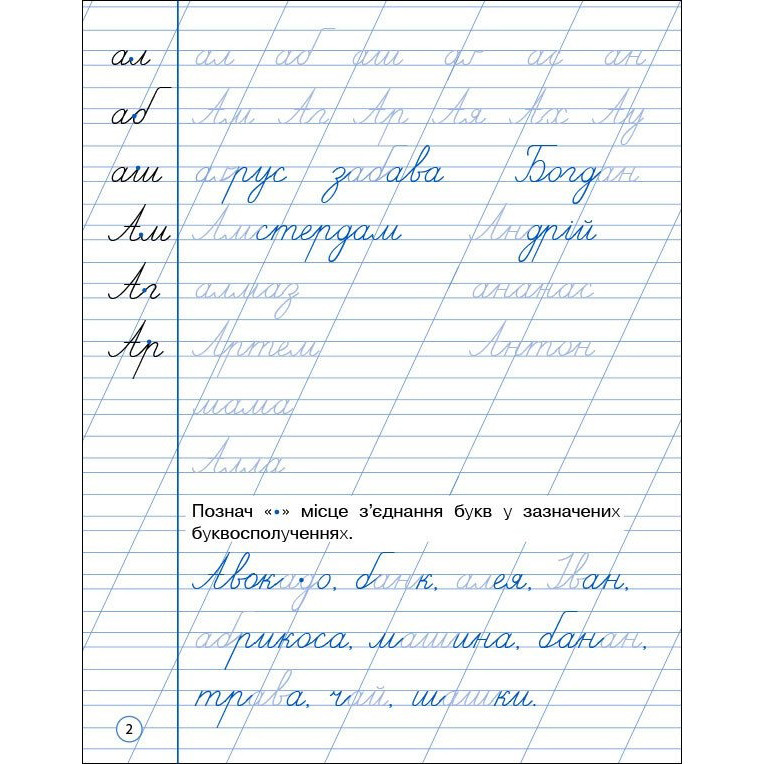 ал ал аб аш ав ас ан
аб Ам Аг Ар Ая Ах Ау
аш аркус забава Богдан
Ам Амстердам Андрій
Аг алмаз ананас
Ар Артем Антон
мама
Алла
Познач «•» місце з’єднання букв у зазначених
буквосполученнях.
Авокадо, банк, алея, Іван,
абрикоса, машина, банан,
трава, чай, шашки.
2